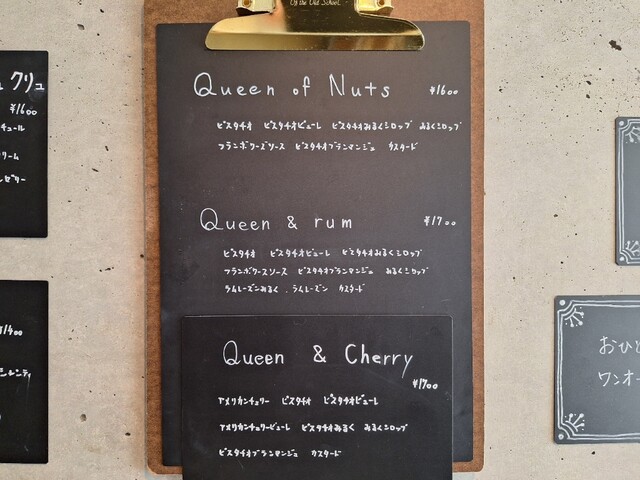 Of the Old School
Queen of Nuts ¥1600
ピスタチオ ピスタチオピューレ ピスタチオみるくシロップ みるくシロップ
フランボワーズソース ピスタチオブランマンジュ カスタード
Queen & rum ¥1700
ピスタチオ ピスタチオピューレ ピスタチオみるくシロップ
フランボワーズソース ピスタチオブランマンジュ みるくシロップ
ラムレーズンみるく . ラムレーズン カスタード
Queen & Cherry
¥1700
アメリカンチェリー ピスタチオ ピスタチオピューレ
アメリカンチェリーピューレ ピスタチオみるく みるくシロップ
ピスタチオブランマンジュ カスタード
クリュ
¥1600
チュール
リーム
¥1400
おひと
ワンオー